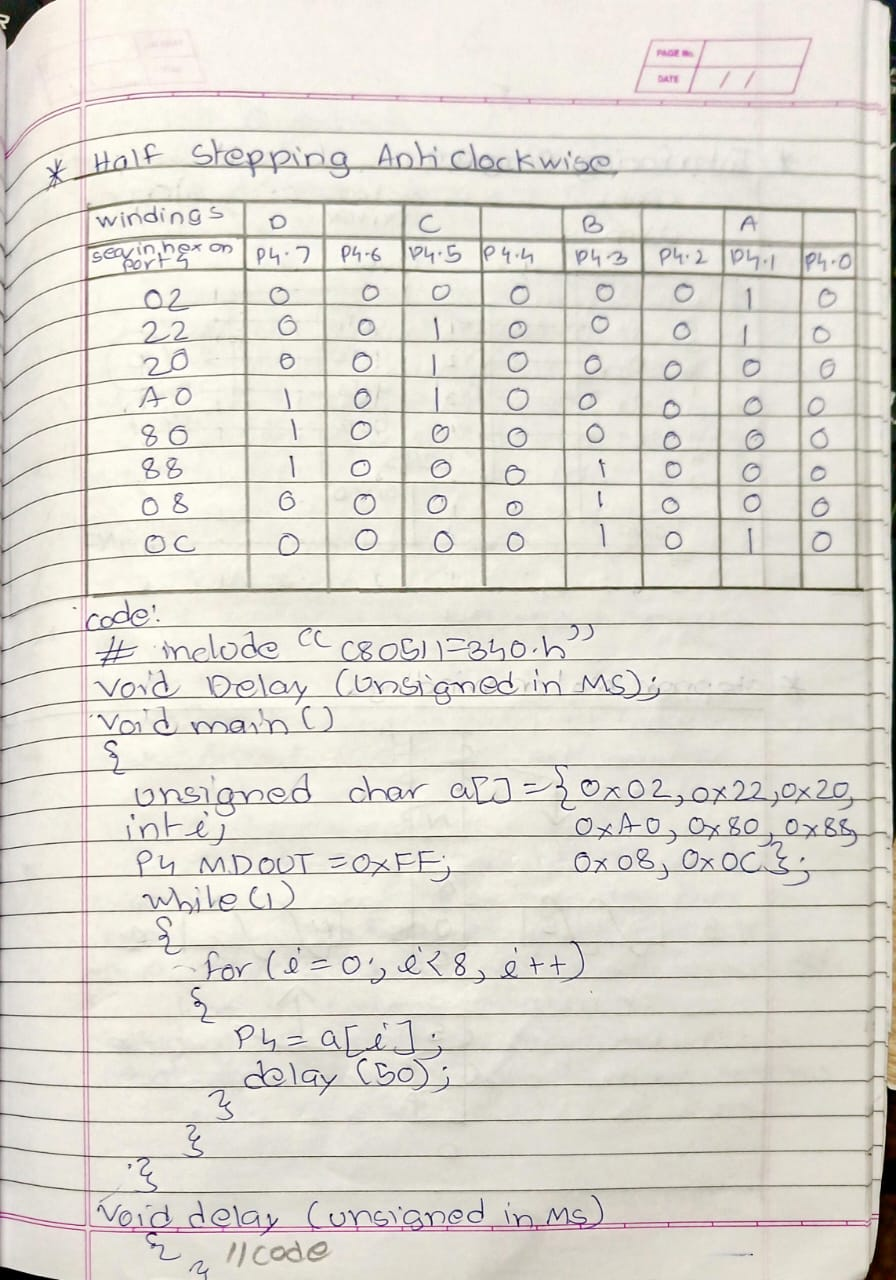 PAGE No.
DATE / /
* Half Stepping Anticlockwise.
windings D C B A
seq. in hex on port 4 P4.7 P4.6 P4.5 P4.4 P4.3 P4.2 P4.1 P4.0
02 0 0 0 0 0 0 1 0
22 0 0 1 0 0 0 1 0
20 0 0 1 0 0 0 0 0
A0 1 0 1 0 0 0 0 0
80 1 0 0 0 0 0 0 0
88 1 0 0 0 1 0 0 0
08 0 0 0 0 1 0 0 0
0C 0 0 0 0 1 0 1 0
code:
# include "C8051F340.h"
void Delay (unsigned in Ms);
void main()
{
unsigned char a[]={0x02,0x22,0x20,
int i; 0xA0, 0x80, 0x88,
P4 MDOUT = 0xFF; 0x08, 0x0C};
while(1)
{
for (i=0; i<8, i++)
{
P4 = a[i];
delay (50);
}
}
}
void delay (unsigned in Ms)
{ } //code